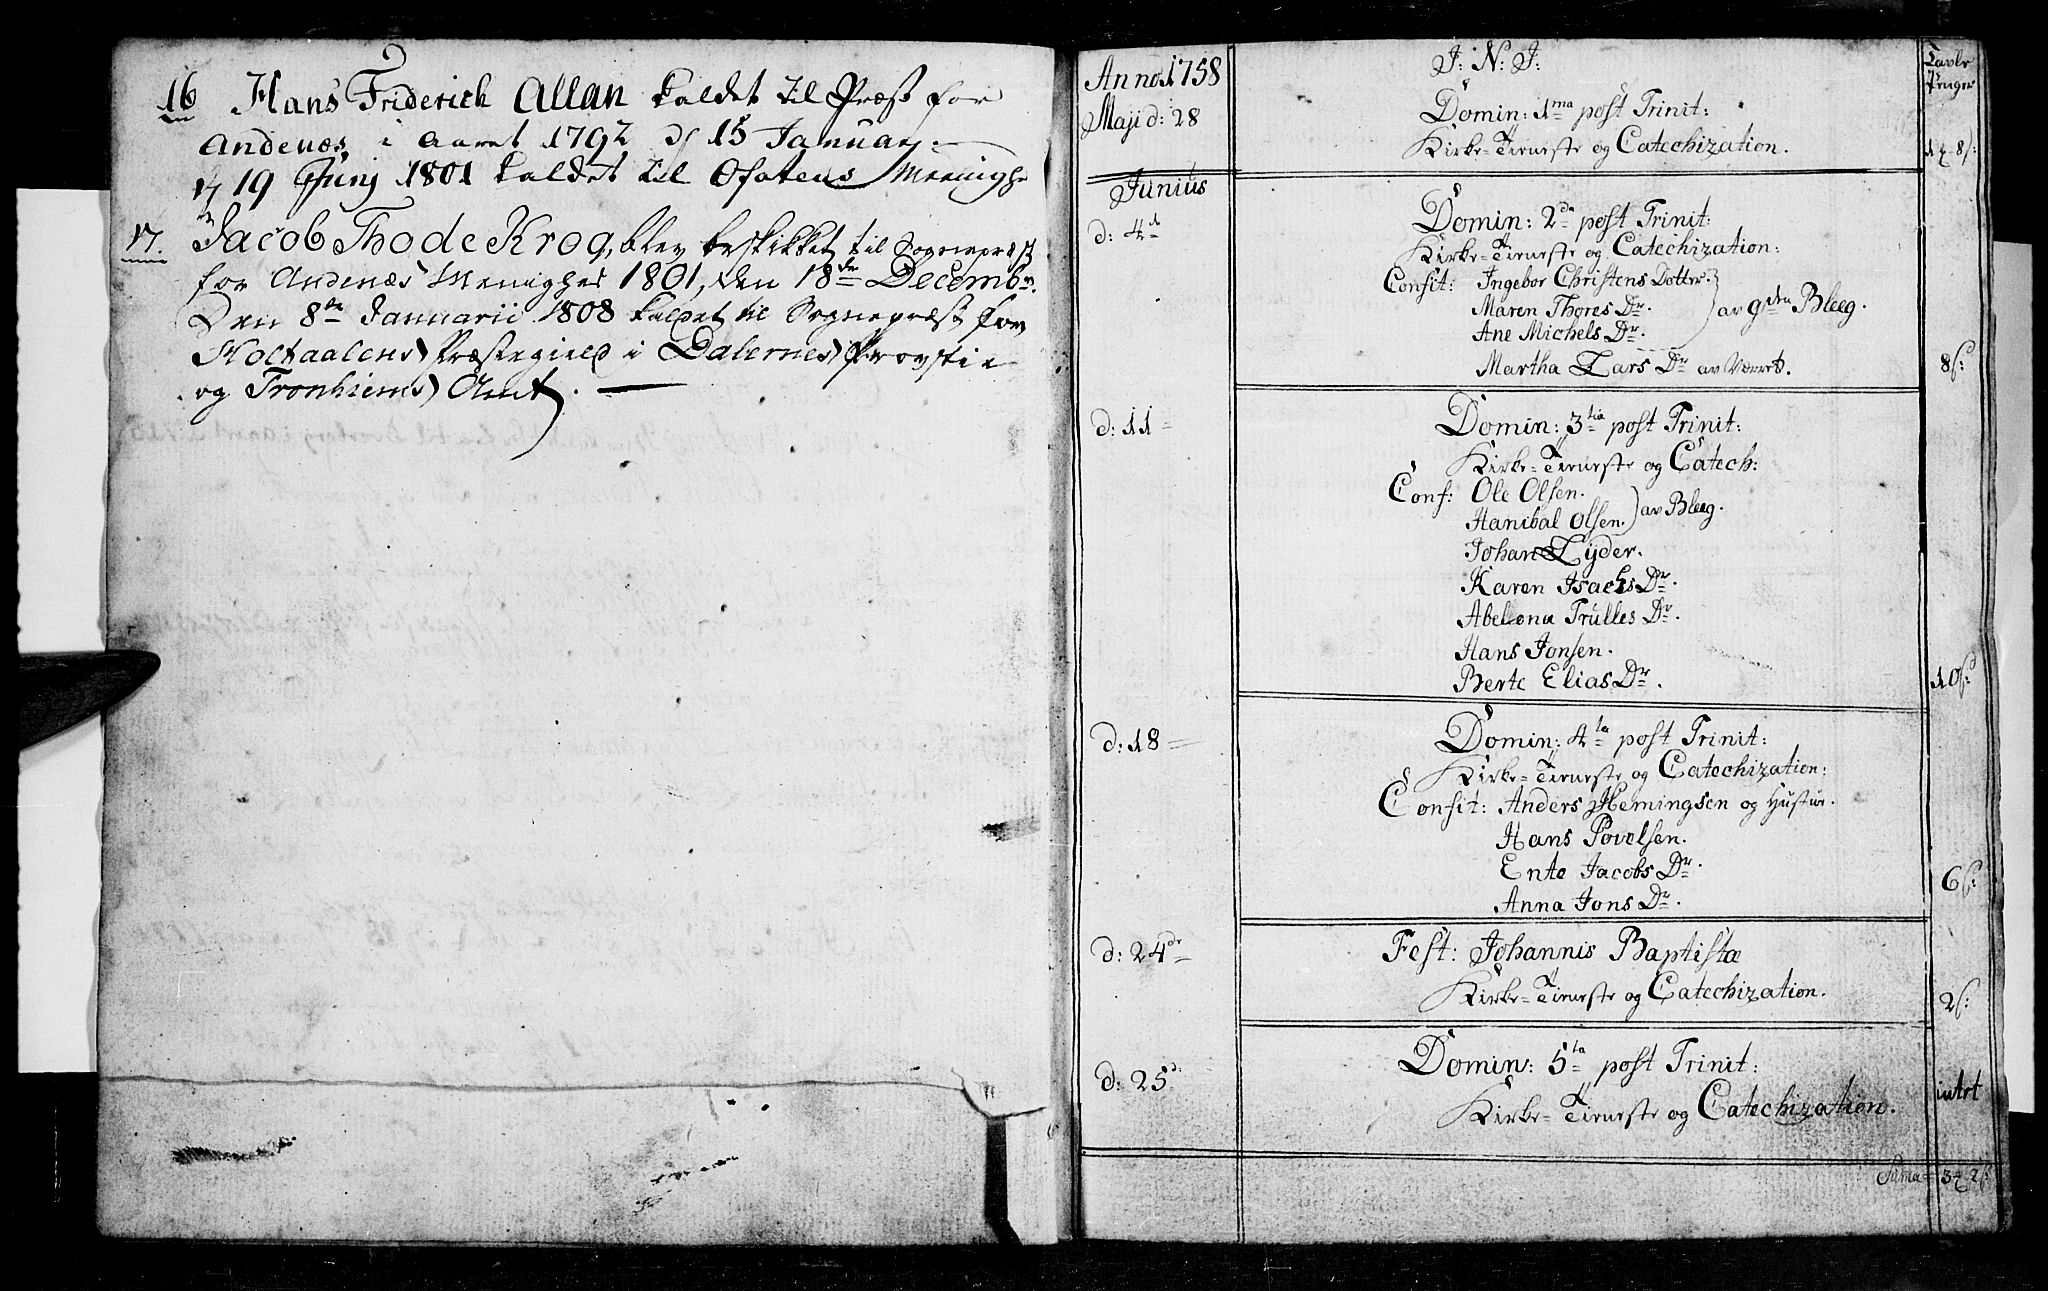 16 Hans Friderich Allan kaldet til Præst for
Andenæs i Aaret 1792 d 15 Januar.
d 19 Junj 1801 kaldet til Ofotens Meenighe
17. Jacob Thode Krog, blev beskikket til Sognepræst
for Andenæs Menighed 1801, den 18de Decembr.
Den 8de Januarii 1808 kaldet til Sognepræst for
Holtaalens Præstegield i Dalernes Provstie
og Tronhiems Amt.
Anno 1758
J: N: J:
Tavle
Penger
Maji d: 28
Domin: 1ma post Trinit:
Kirke-Tieneste og Catechization.
1 ʒ 8ſ:
Junius
d: 4de
Domin: 2da post Trinit:
Kirke-Tieneste og Catechization:
Confit: Ingebor Christens Dotter.
Maren Thores Dr. av gden Bleeg.
Ane Michels Dr.
Martha Lars Dr av Værret.
8ſ:
d: 11
Domin: 3tia post Trinit:
Kirke-Tieneste og Catech:
Conf: Ole Olsen.
Hanibal Olsen. av Bleeg.
Johan Tyder.
Karen Isachs Dr.
Abelona Trulles Dr.
Hans Jonsen.
Berte Elias Dr.
10ſ:
d: 18
Domin: 4ta post Trinit:
Kirke-Tieneste og Catechization:
Confit: Anders Hemingsen og Hustue.
Hans Povelsen.
Ente Jacobs Dr.
Anna Jons Dr.
6ſ:
d: 24de
Fest: Johannis Baptistæ
Kirke-Tieneste og Catechization.
2ſ:
d: 25
Domin: 5ta post Trinit:
Kirke-Tieneste og Catechization.
intet
Suma = 3ʒ 2ſ